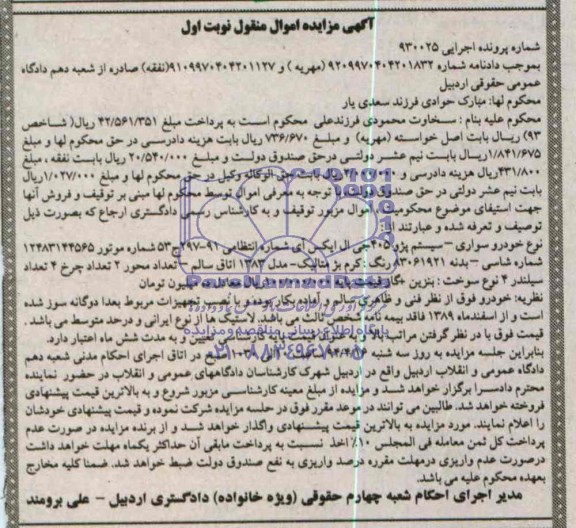 آگهی مزایده اموال منقول نوبت اول
شماره پرونده اجرایی ۹۳۰۰۲۵
بموجب دادنامه شماره ۹۲۰۹۹۷۰۴۰۴۲۰۱۸۳۲ (مهریه) و ۹۱۰۹۹۷۰۴۰۴۲۰۱۱۲۷(نفقه) صادره از شعبه دهم دادگاه
عمومی حقوقی اردبیل
محکوم لها: مبارک جوادی فرزند سعدی یار
محکوم علیه بنام : سخاوت محمودی فرزندعلی محکوم است به پرداخت مبلغ ۴۲/۵۶۱/۳۵۱ ریال( شاخص
۹۳) ریال بابت اصل خواسته (مهریه) و مبلغ ۷۳۶/۶۷۰ ریال بابت هزینه دادرسی در حق محکوم لها و مبلغ
۱/۸۴۱/۶۷۵ریال بابت نیم عشر دولتی درحق صندوق دولت و مبلغ ۲۰/۵۴۰/۰۰۰ ریال بابت نفقه ، مبلغ
۴۳۱/۸۰۰ریال هزینه دادرسی و ریال بابت حق الوکاله وکیل در حق محکوم لها و مبلغ ۱/۰۲۷/۰۰۰ریال
بابت نیم عشر دولتی در حق صندوق دولت با توجه به معرفی اموال توسط محکوم لها مبنی بر توقیف و فروش آنها
جهت استیفای موضوع محکومیت ، اموال مزبور توقیف و به کارشناس رسمی دادگستری ارجاع که بصورت ذیل
توصیف و تعرفه شده و عبارتند از:
نوع خودرو سواری – سیستم پژو ۴۰۵جی ال ایکس آی شماره انتظامی ۹۱-۲۹۷ج۵۳ شماره موتور ۱۲۴۸۳۱۴۴۵۶۵
شماره شاسی – بدنه ۸۳۰۶۱۹۲۱ رنگ: کرم بژ متالیک- مدل ۱۳۸۳ اتاق سالم – تعداد محور ۲ تعداد چرخ ۴ تعداد
سیلندر ۴ نوع سوخت : بنزین -گاز قیمت پایه میلیون تومان
نظریه: خودرو فوق از نظر فنی و ظاهری سالم و آماده بکار بوده و با نصب تجهیزات مربوط بعدا دوگانه سوز شده
است و از اسفندماه ۱۳۸۹ فاقد بیمه نامه شخص ثالث می باشد. لاستیک ها از نوع ایرانی و درحد متوسط می باشد .
قیمت فوق با در نظر گرفتن مراتب بالا و به عنوان قیمت پایه کارشناسی تعیین و به مدت شش ماه اعتبار دارد.
بنابراین جلسه مزایده به روز سه شنبه در اتاق اجرای احکام مدنی شعبه دهم
دادگاه عمومی و انقلاب اردبیل واقع در اردبیل شهرک کارشناسان دادگاههای عمومی و انقلاب در حضور نماینده
محترم دادسرا برگزار خواهد شد و مزایده از مبلغ معینه کارشناسی مزبور شروع و به بالاترین قیمت پیشنهادی
فروخته خواهد شد. طالبین می توانند در موعد مقرر فوق در جلسه مزایده شرکت نموده و قیمت پیشنهادی خودشان
را اعلام نمایند. مورد مزایده به بالاترین قیمت پیشنهادی واگذار خواهد شد و از برنده مزایده در صورت عدم
پرداخت کل ثمن معامله فی المجلس ۱۰٪ اخذ نسبت به پرداخت مابقی آن حداکثر یکماه مهلت خواهد داشت
درصورت عدم واریزی درمهلت مقرره درصد واریزی به نفع صندوق دولت ضبط خواهد شد. ضمنا کلیه مخارج
بعهده محکوم علیه می باشد.
مدیر اجرای احکام شعبه چهارم حقوقی (ویژه خانواده) دادگستری اردبیل – علی برومند